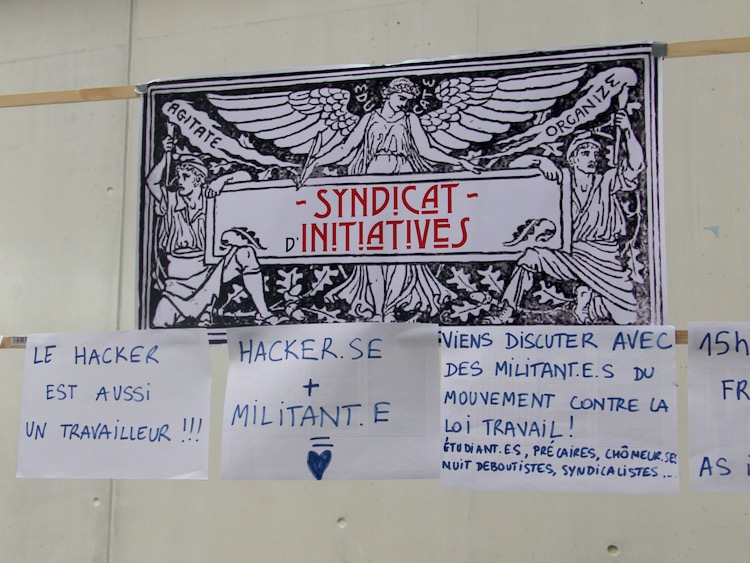 AGITATE
EDUCATE
ORGANIZE
- SYNDICAT -
D'INITIATIVES
LE HACKER
EST AUSSI
UN TRAVAILLEUR !!!
HACKER.SE
+
MILITANT.E
=
VIENS DISCUTER AVEC
DES MILITANT.E.S DU
MOUVEMENT CONTRE LA
LOI TRAVAIL !
ÉTUDIANT.ES, PRÉCAIRES, CHÔMEUR.SES
NUIT DEBOUTISTES, SYNDICALISTES...
15h
FR
AS